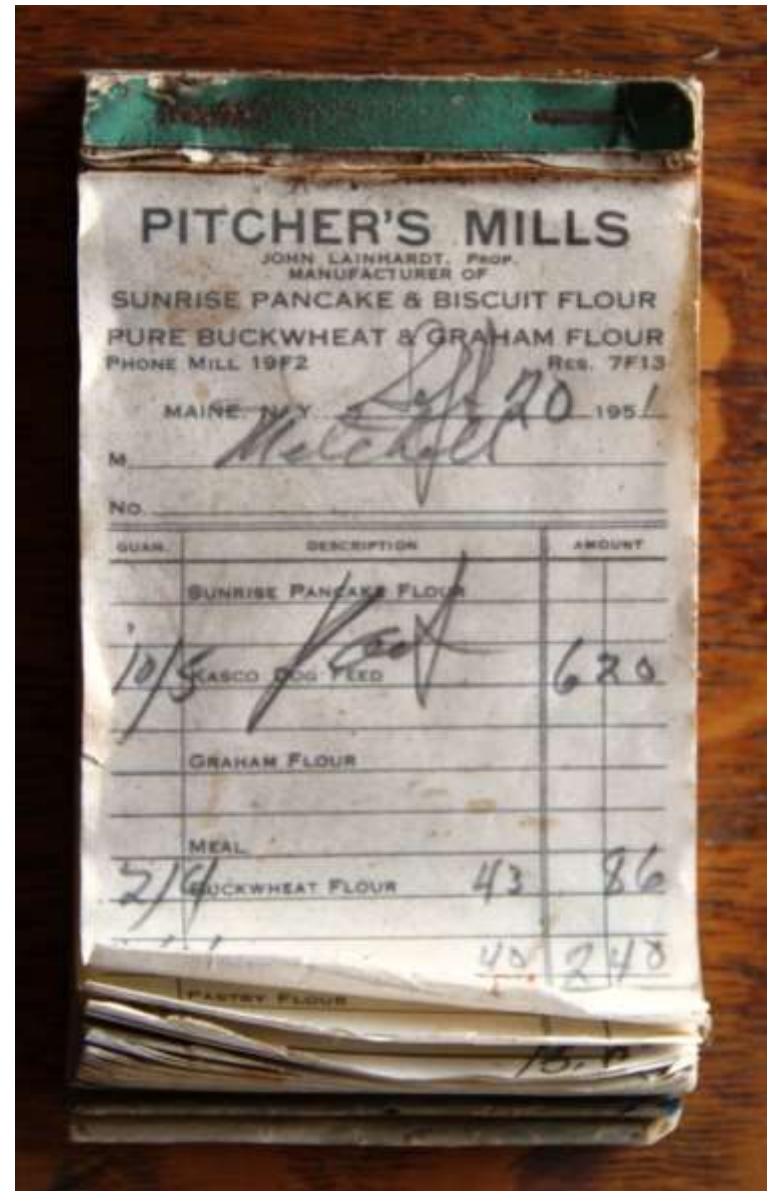 PITCHER'S MILLS
JOHN LAINHARDT, PROP.
MANUFACTURER OF
SUNRISE PANCAKE & BISCUIT FLOUR
PURE BUCKWHEAT & GRAHAM FLOUR
PHONE MILL 19F2 RES. 7F13
MAINE, N.Y. Sept 20 1951
M Mitchell
NO.
QUAN. DESCRIPTION AMOUNT
SUNRISE PANCAKE FLOUR
10/5 KASCO DOG FEED 6 20
GRAHAM FLOUR
MEAL
2/4 BUCKWHEAT FLOUR 43 86
40 2 40
PASTRY FLOUR